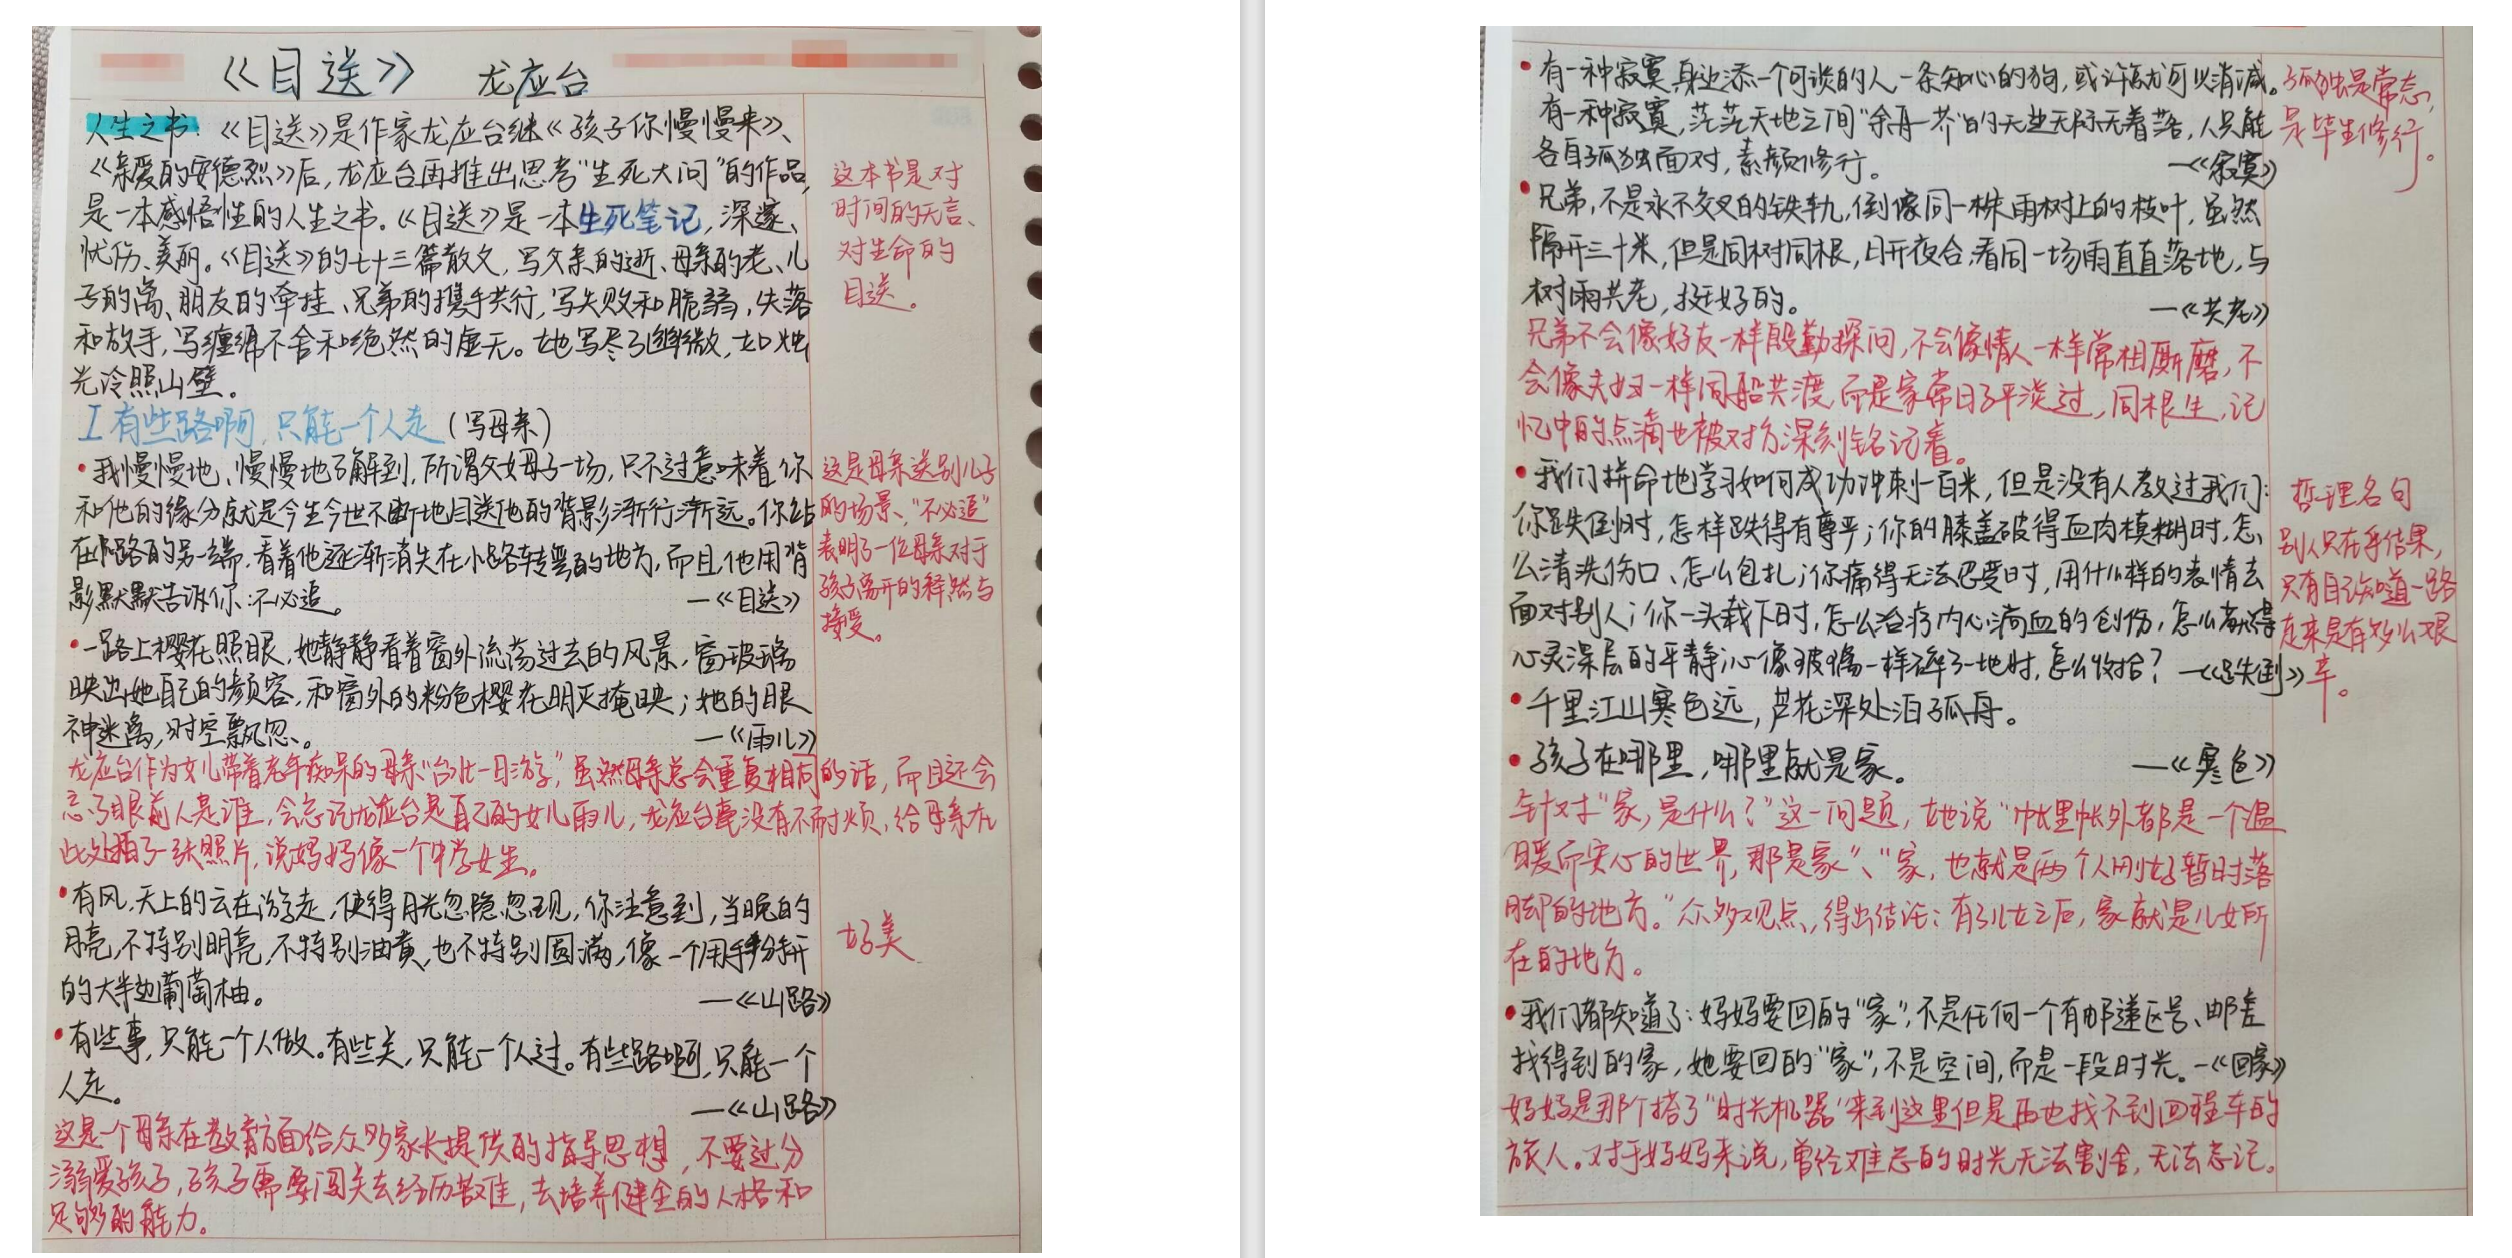 《目送》 龙应台
人生之书：《目送》是作家龙应台继《孩子你慢慢来》、
《亲爱的安德烈》后，龙应台再推出思考“生死大问”的作品，
是一本感悟性的人生之书。《目送》是一本生死笔记，深邃、
忧伤、美丽。《目送》的七十三篇散文，写父亲的逝、母亲的老、儿
子的离、朋友的牵挂、兄弟的携手共行，写失败和脆弱，失落
和放手，写缠绵不舍和绝然的虚无。她写尽了幽微，如烛
光冷照山壁。
这本书是对
时间的无言、
对生命的
目送。
I 有些路啊，只能一个人走（写母亲）
• 我慢慢地、慢慢地了解到，所谓父女母子一场，只不过意味着你
和他的缘分就是今生今世不断地目送他的背影渐行渐远。你站
在小路的另一端，看着他逐渐消失在小路转弯的地方，而且，他用背
影默默告诉你：不必追。 —《目送》
这是母亲送别儿子
的场景，“不必追”
表明了一位母亲对于
孩子离开的释然与
接受。
• 一路上樱花照眼，她静静看着窗外流荡过去的风景，窗玻璃
映出她自己的颜容，和窗外的粉色樱花明灭掩映；她的眼
神迷离，时空飘忽。 —《雨儿》
龙应台作为女儿带着老年痴呆的母亲“台北一日游”，虽然母亲总会重复相同的话，而且还会
忘了眼前人是谁，会忘记龙应台是自己的女儿雨儿，龙应台毫没有不耐烦，给母亲在
此处拍了一张照片，说妈妈像一个中学女生。
• 有风，天上的云在游走，使得月光忽隐忽现，你注意到，当晚的
月亮，不特别明亮，不特别油黄，也不特别圆满，像一个用手掰开
的大半边葡萄柚。 —《山路》
好美
• 有些事，只能一个人做。有些关，只能一个人过。有些路啊，只能一个
人走。 —《山路》
这是一个母亲在教育方面给众多家长提供的指导思想，不要过分
溺爱孩子，孩子需要闯关去经历苦难，去培养健全的人格和
足够的能力。
• 有一种寂寞，身边添一个可谈的人，一条知心的狗，或许就可以消减。
有一种寂寞，茫茫天地之间“余舟一芥”的无边无际无着落，人只能
各自孤独面对，素颜修行。 —《寂寞》
孤独是常态，
是毕生修行。
• 兄弟，不是永不交叉的铁轨，倒像同一株雨树上的枝叶，虽然
隔开三十米，但是同树同根，日开夜合，看同一场雨直直落地，与
树雨共老，挺好的。 —《共老》
兄弟不会像好友一样殷勤探问，不会像情人一样常相厮磨，不
会像夫妇一样同船共渡，而是家常日子平淡过，同根生，记
忆中的点滴也被对方深刻铭记着。
• 我们拼命地学习如何成功冲刺一百米，但是没有人教过我们：
你跌倒时，怎样跌得有尊严；你的膝盖破得血肉模糊时，怎
么清洗伤口、怎么包扎；你痛得无法忍受时，用什么样的表情去
面对别人；你一头栽下时，怎么治疗内心淌血的创伤，怎么获得
心灵深层的平静；心像玻璃一样碎了一地时，怎么收拾？ —《跌倒》
哲理名句
别人只在乎结果，
只有自己知道一路
走来是有多么艰
辛。
• 千里江山寒色远，芦花深处泊孤舟。
• 孩子在哪里，哪里就是家。 —《寒色》
针对“家，是什么？”这一问题，她说“帐里帐外都是一个温
暖而实心的世界，那是家”、“家，也就是两个人刚好暂时落
脚的地方。”众多观点，得出结论：有了儿女之后，家就是儿女所
在的地方。
• 我们都知道了：妈妈要回的“家”，不是任何一个有邮递区号、邮差
找得到的家，她要回的“家”，不是空间，而是一段时光。 —《回家》
妈妈是那个搭了“时光机器”来到这里但是再也找不到回程车的
旅人。对于妈妈来说，曾经难忘的时光无法割舍，无法忘记。